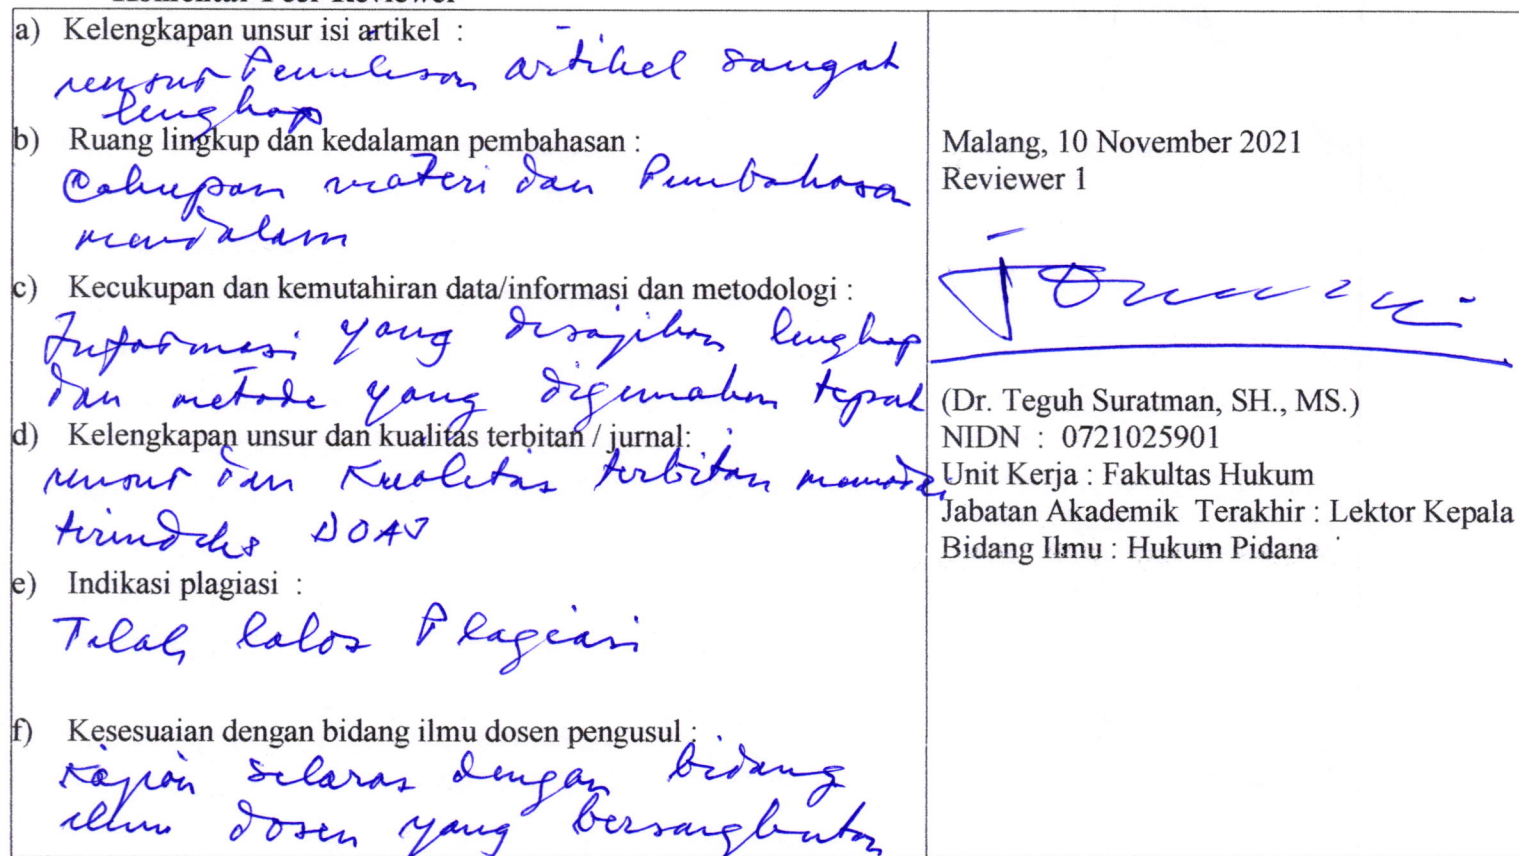 Komentar Peer Reviewer
a) Kelengkapan unsur isi artikel :
unsur Penulisan artikel sangat
lengkap
b) Ruang lingkup dan kedalaman pembahasan :
Cakupan materi dan Pembahasan
mendalam
c) Kecukupan dan kemutahiran data/informasi dan metodologi :
Informasi yang disajikan lengkap
dan metode yang digunakan tepat
d) Kelengkapan unsur dan kualitas terbitan / jurnal:
unsur dan Kualitas terbitan memadai
terindeks DOAJ
e) Indikasi plagiasi :
Telah lolos Plagiasi
f) Kesesuaian dengan bidang ilmu dosen pengusul :
Kajian selaras dengan bidang
ilmu dosen yang bersangkutan
Malang, 10 November 2021
Reviewer 1
(Dr. Teguh Suratman, SH., MS.)
NIDN : 0721025901
Unit Kerja : Fakultas Hukum
Jabatan Akademik Terakhir : Lektor Kepala
Bidang Ilmu : Hukum Pidana